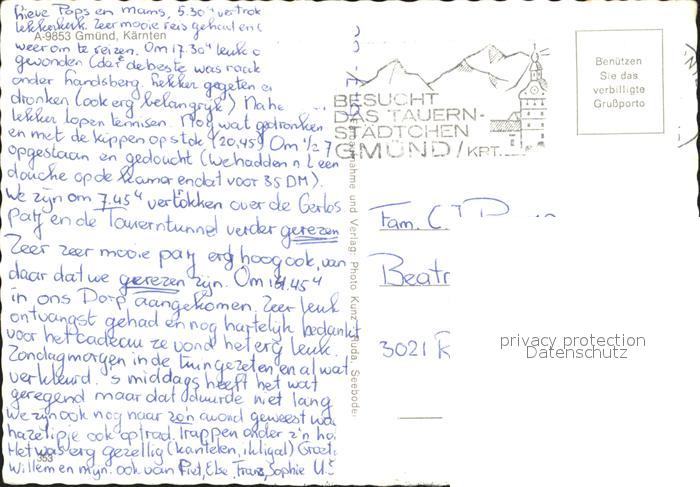 Lieve Paps en mams, 5.30ᵘ vertrok
lekkerkerk. Zeer mooie reis gehad en
A-9853 Gmünd, Kärnten
weer om te reizen. Om 17.30ᵘ leuk
gewonden (dat de beste was
onder handsberg. Lekker gegeten
dronken (ook erg belangrijk) Na he
lekker lopen tennissen. Nog wat gedronken
en met de kippen op stok (20.45ᵘ) Om ½ 7
opgestaan en gedoucht (we hadden n
douche op de kamer en dat voor 35 DM).
We zijn om 7.45ᵘ vertrokken over de Gerlos
pas en de Tauerntunnel verder gerezen
Zeer zeer mooie pas erg hoog ook, van
daar dat we gerezen zijn. Om 14.45ᵘ
in ons Dorp aangekomen. Zeer leuk
ontvangst gehad en nog hartelijk bedankt
voor het cadeau ze vond het erg leuk.
Zondagmorgen in de tuin gezeten en al wat
verkleurd. 's middags heeft het wat
geregend maar dat duurde niet lang
We zijn ook nog naar zo'n avond geweest
ook optrad. Trappen onder z'n
Het was erg gezellig (kantelen,
353
Willem en mijn. ook van Piet, Else, Frans, Sophie
BESUCHT
DAS TAUERN-
STÄDTCHEN
GMÜND/KRT.
Benützen
Sie das
verbilligte
Grußporto
Aufnahme und Verlag: Photo Kunz Seeboden
Fam. C.
Beatr
3021
privacy protection
Datenschutz